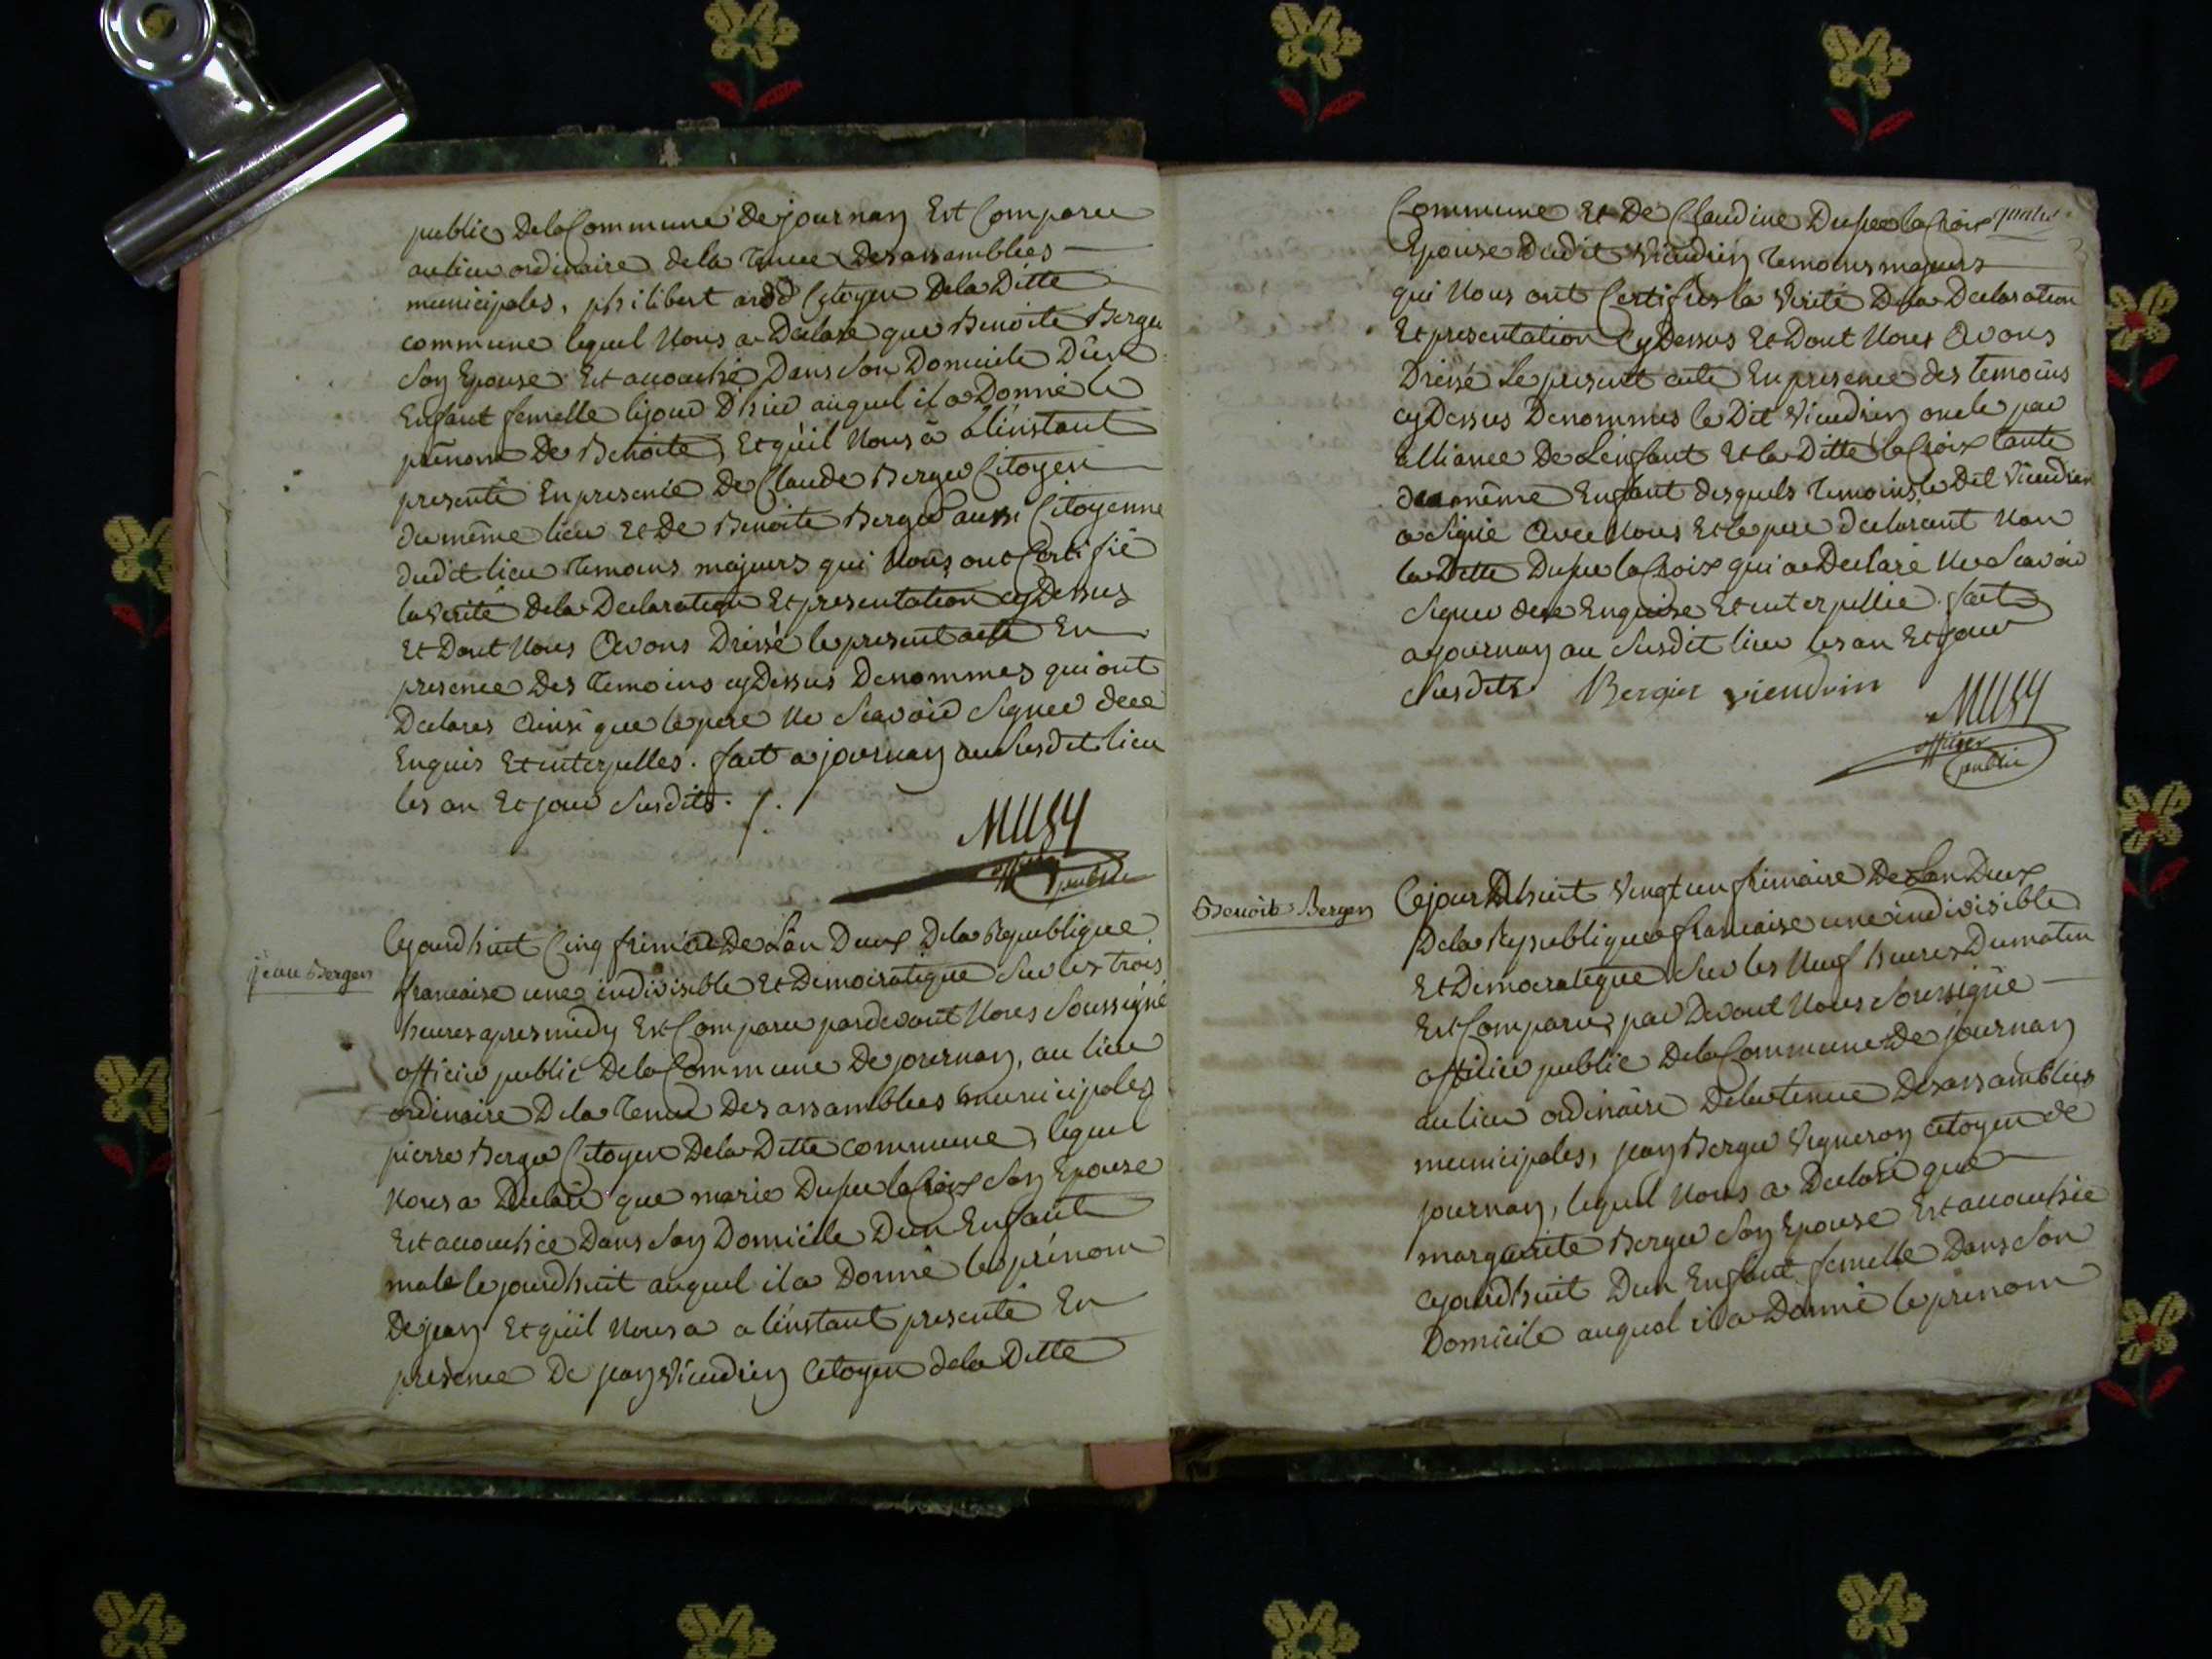 public De la Commune de journan Est Comparu
au lieu ordinaire de la tenue Des assamblées
municipales, philibert Citoyen De la Ditte
commune lequel Nous a Declaré que Benoite Berger
son Epouse Est accouché Dans son Domicile D'un
Enfant femelle le jour D'hier auquel il a Donné le
prénom De Benoite, Et qu'il Nous à à l'instant
presenté En presence De Claude Berger Citoyen
du même lieu Et De Benoite Berger aussi Citoyenne
dudit lieu temoins majeurs qui Nous ont Certifié
la verité de la Declaration Et presentation cy Dessus
Et Dont Nous Avons Dressé le present acte En
presence Des temoins cy Dessus Denommes qui ont
Declares Ainsi que le pere Ne scavoir signer de ce
Enquis Et interpelles. fait a journan au susdit lieu
les an Et jour susdits.
MUSY
officier
public
jean Berger
Cejourdhuit Cinq frimaire De L'an Deux De la Republique
francaise une indivisible Et Democratique sur les trois
heures apres midy Est Comparu pardevant Nous soussigné
officier public De la Commune De journan, au lieu
ordinaire De la tenue Des assamblées municipales
pierre Berger Citoyen De la Ditte commune, lequel
Nous a Declaré que marie Dupu la Croix son Epouse
Est accouchée Dans son Domicile D'un Enfant
male le jourdhuit auquel il a Donné le prénom
De jean Et qu'il Nous a a l'instant presenté En
presence De jean Vieudrin Citoyen de la Ditte
Commune Et De Claudine Dupu la Croix
Epouse dudit Vieudrin temoins majeurs
qui Nous ont Certifiés la Verité De la Declaration
Et presentation Cy Dessus Et Dont Nous Avons
Dressé Le present acte En presence des temoins
cy Dessus Denommes le Dit Vieudrin oncle par
alliance De L'enfant Et la Ditte la Croix tante
du même Enfant desquels temoins, le Dit Vieudrin
a signé Avec Nous Et le pere declarant Non
la Ditte Dupu la Croix qui a Declaré Ne scavoir
signer de ce Enquise Et interpellée. fait
a journan au susdit lieu les an Et jour
susdits. Bergier vieudrin
MUSY
officier
public
Benoite Berger
Cejour Dhuit Vingt un frimaire De L'an Deux
De la Republique francaise une indivisible
Et Democratique sur les Neuf heures Du matin
Est Comparu par Devant Nous soussigné
officier public De la Commune De journan
au lieu ordinaire De la tenue Des assamblées
municipales, jean Berger Vigneron citoyen de
journan, lequel Nous a Declaré que
marguerite Berger son Epouse Est accouchée
cejourdhuit D'un Enfant femelle Dans son
Domicile auquel il a Donné le prenom